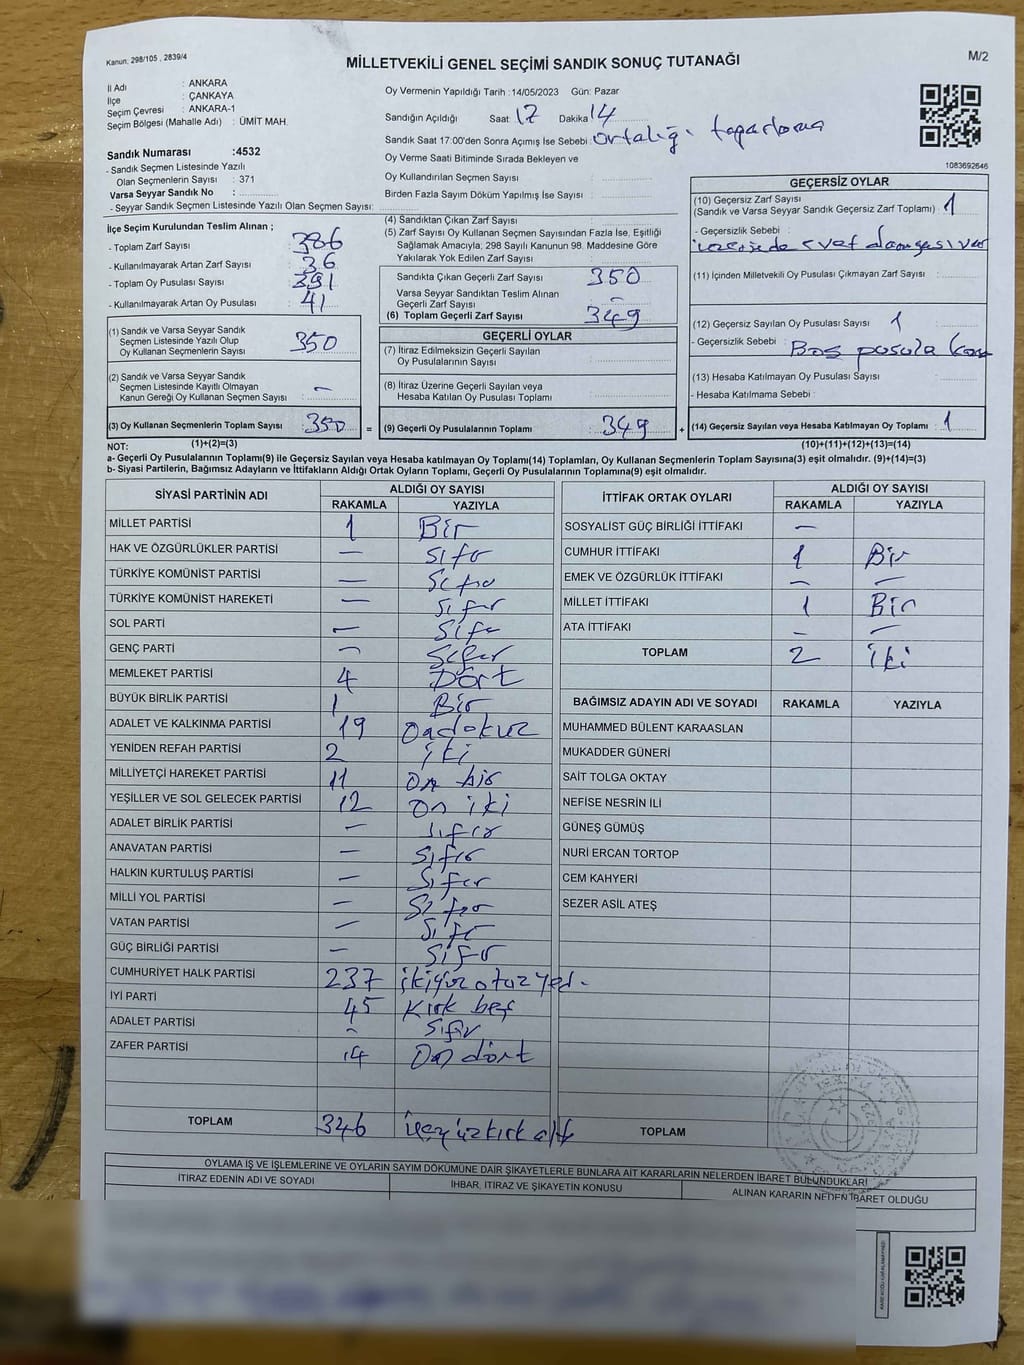 Kanun; 298/105 , 2839/4
M/2
MİLLETVEKİLİ GENEL SEÇİMİ SANDIK SONUÇ TUTANAĞI
İl Adı : ANKARA
İlçe : ÇANKAYA
Seçim Çevresi : ANKARA-1
Seçim Bölgesi (Mahalle Adı) : ÜMİT MAH.
Oy Vermenin Yapıldığı Tarih :14/05/2023 Gün: Pazar
Sandığın Açıldığı Saat: 17 Dakika 14
Sandık Saat 17:00'den Sonra Açımış İse Sebebi: Ortalığı
Oy Verme Saati Bitiminde Sırada Bekleyen ve
Oy Kullandırılan Seçmen Sayısı :
Birden Fazla Sayım Döküm Yapılmış İse Sayısı :
1083692646
Sandık Numarası :4532
- Sandık Seçmen Listesinde Yazılı
Olan Seçmenlerin Sayısı : 371
Varsa Seyyar Sandık No :
- Seyyar Sandık Seçmen Listesinde Yazılı Olan Seçmen Sayısı:
İlçe Seçim Kurulundan Teslim Alınan ;
- Toplam Zarf Sayısı : 386
- Kullanılmayarak Artan Zarf Sayısı : 36
- Toplam Oy Pusulası Sayısı : 391
- Kullanılmayarak Artan Oy Pusulası : 41
(1) Sandık ve Varsa Seyyar Sandık
Seçmen Listesinde Yazılı Olup
Oy Kullanan Seçmenlerin Sayısı : 350
(2) Sandık ve Varsa Seyyar Sandık
Seçmen Listesinde Kayıtlı Olmayan
Kanun Gereği Oy Kullanan Seçmen Sayısı : –
(3) Oy Kullanan Seçmenlerin Toplam Sayısı : 350
(4) Sandıktan Çıkan Zarf Sayısı :
(5) Zarf Sayısı Oy Kullanan Seçmen Sayısından Fazla İse, Eşitliği
Sağlamak Amacıyla, 298 Sayılı Kanunun 98. Maddesine Göre
Yakılarak Yok Edilen Zarf Sayısı :
Sandıkta Çıkan Geçerli Zarf Sayısı : 350
Varsa Seyyar Sandıktan Teslim Alınan
Geçerli Zarf Sayısı : –
(6) Toplam Geçerli Zarf Sayısı : 349
GEÇERLİ OYLAR
(7) İtiraz Edilmeksizin Geçerli Sayılan
Oy Pusulalarının Sayısı :
(8) İtiraz Üzerine Geçerli Sayılan veya
Hesaba Katılan Oy Pusulası Toplamı :
= (9) Geçerli Oy Pusulalarının Toplamı : 349
GEÇERSİZ OYLAR
(10) Geçersiz Zarf Sayısı
(Sandık ve Varsa Seyyar Sandık Geçersiz Zarf Toplamı) : 1
- Geçersizlik Sebebi :
üzerinde evet damgası var
(11) İçinden Milletvekili Oy Pusulası Çıkmayan Zarf Sayısı :
(12) Geçersiz Sayılan Oy Pusulası Sayısı : 1
- Geçersizlik Sebebi : Boş pusula
(13) Hesaba Katılmayan Oy Pusulası Sayısı :
- Hesaba Katılmama Sebebi :
+ (14) Geçersiz Sayılan veya Hesaba Katılmayan Oy Toplamı : 1
NOT: (1)+(2)=(3) (10)+(11)+(12)+(13)=(14)
a- Geçerli Oy Pusulalarının Toplamı(9) ile Geçersiz Sayılan veya Hesaba katılmayan Oy Toplamı(14) Toplamları, Oy Kullanan Seçmenlerin Toplam Sayısına(3) eşit olmalıdır. (9)+(14)=(3)
b- Siyasi Partilerin, Bağımsız Adayların ve İttifakların Aldığı Ortak Oyların Toplamı, Geçerli Oy Pusulalarının Toplamına(9) eşit olmalıdır.
SİYASİ PARTİNİN ADI ALDIĞI OY SAYISI
RAKAMLA YAZIYLA
MİLLET PARTİSİ 1 Bir
HAK VE ÖZGÜRLÜKLER PARTİSİ – Sıfır
TÜRKİYE KOMÜNİST PARTİSİ – Sıfır
TÜRKİYE KOMÜNİST HAREKETİ – Sıfır
SOL PARTİ – Sıfır
GENÇ PARTİ – Sıfır
MEMLEKET PARTİSİ 4 Dört
BÜYÜK BİRLİK PARTİSİ 1 Bir
ADALET VE KALKINMA PARTİSİ 19 Ondokuz
YENİDEN REFAH PARTİSİ 2 iki
MİLLİYETÇİ HAREKET PARTİSİ 11 On bir
YEŞİLLER VE SOL GELECEK PARTİSİ 12 On iki
ADALET BİRLİK PARTİSİ – Sıfır
ANAVATAN PARTİSİ – Sıfır
HALKIN KURTULUŞ PARTİSİ – Sıfır
MİLLİ YOL PARTİSİ – Sıfır
VATAN PARTİSİ – Sıfır
GÜÇ BİRLİĞİ PARTİSİ – Sıfır
CUMHURİYET HALK PARTİSİ 237 ikiyüzotuzyed.
İYİ PARTİ 45 Kırk beş
ADALET PARTİSİ – Sıfır
ZAFER PARTİSİ 14 On dört
TOPLAM 346 üçyüzkırkaltı
İTTİFAK ORTAK OYLARI ALDIĞI OY SAYISI
RAKAMLA YAZIYLA
SOSYALİST GÜÇ BİRLİĞİ İTTİFAKI –
CUMHUR İTTİFAKI 1 Bir
EMEK VE ÖZGÜRLÜK İTTİFAKI – –
MİLLET İTTİFAKI 1 Bir
ATA İTTİFAKI – –
TOPLAM 2 iki
BAĞIMSIZ ADAYIN ADI VE SOYADI RAKAMLA YAZIYLA
MUHAMMED BÜLENT KARAASLAN
MUKADDER GÜNERİ
SAİT TOLGA OKTAY
NEFİSE NESRİN İLİ
GÜNEŞ GÜMÜŞ
NURİ ERCAN TORTOP
CEM KAHYERİ
SEZER ASİL ATEŞ
TOPLAM
OYLAMA İŞ VE İŞLEMLERİNE VE OYLARIN SAYIM DÖKÜMÜNE DAİR ŞİKAYETLERLE BUNLARA AİT KARARLARIN NELERDEN İBARET BULUNDUKLARI
İTİRAZ EDENİN ADI VE SOYADI İHBAR, İTİRAZ VE ŞİKAYETİN KONUSU ALINAN KARARIN NEDEN İBARET OLDUĞU